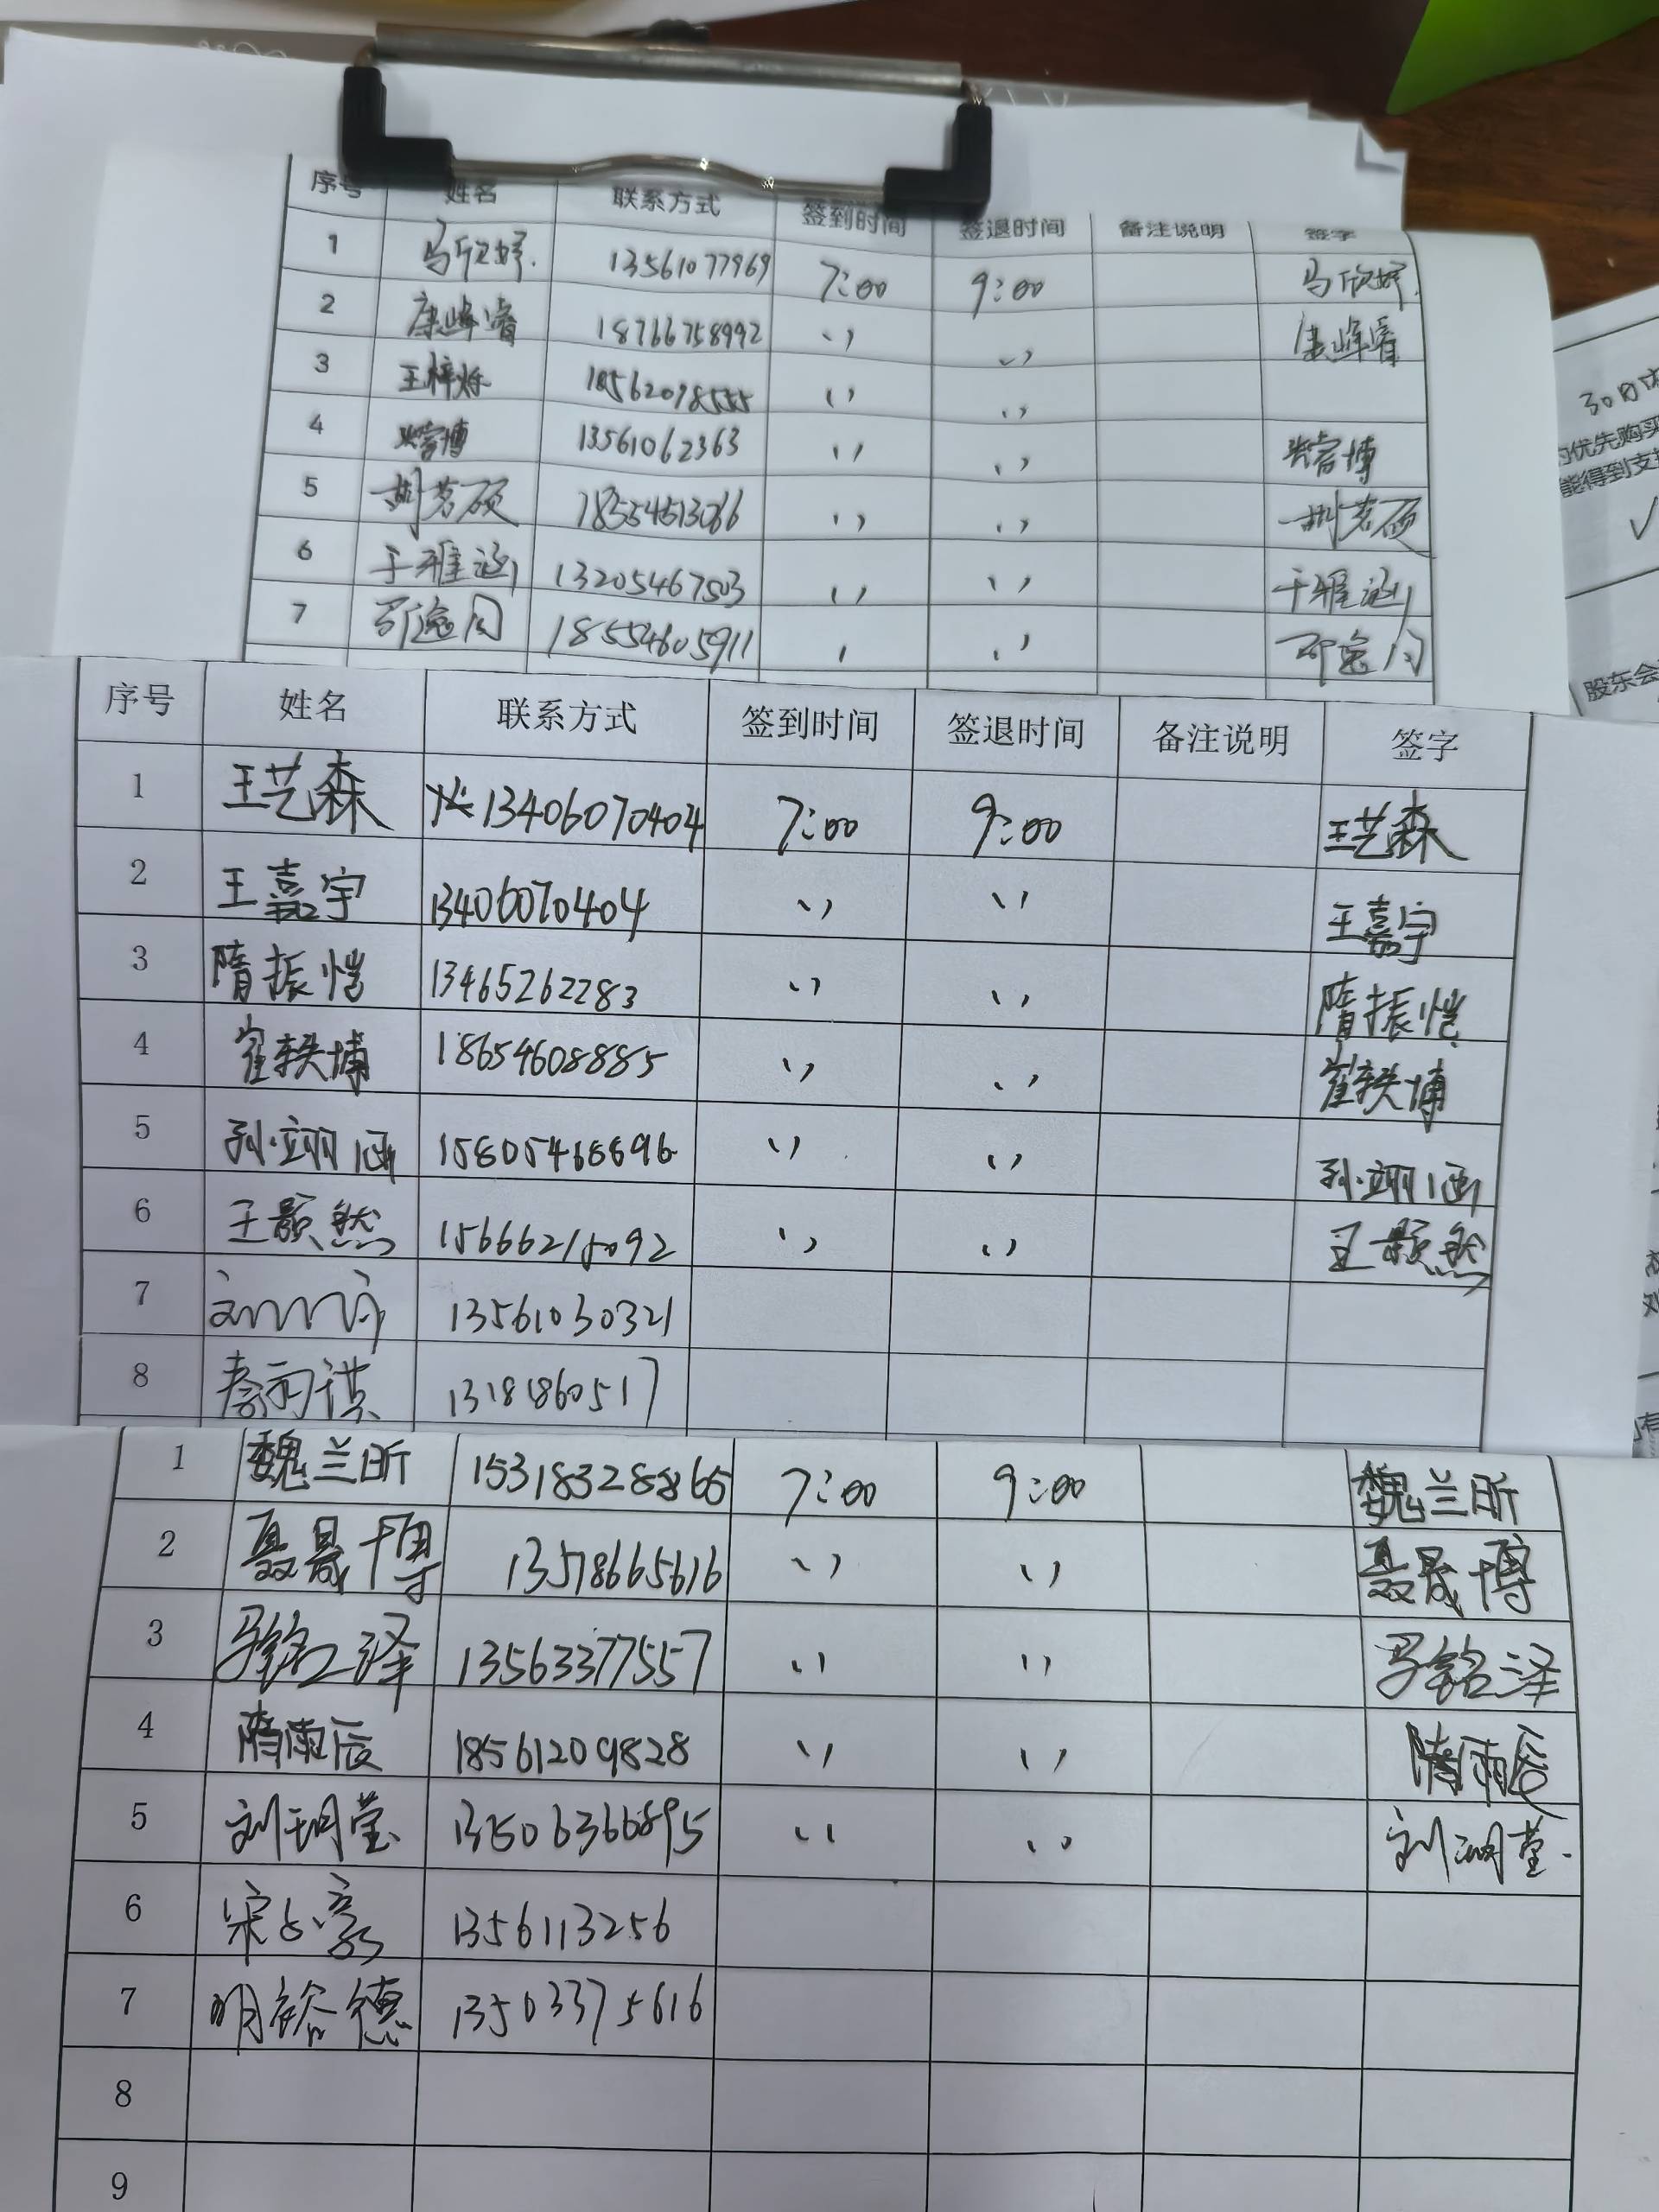 序号 姓名 联系方式 签到时间 签退时间 备注说明 签字
1 马欣妤. 13561077969 7:00 9:00 马欣妤.
2 康峰睿 18766758992 〃 〃 康峰睿
3 王梓烁 18562098555 〃 〃
4 13561062363 〃 〃
5 胡茗硕 18554513066 〃 〃 胡茗硕
6 于雅涵 13205467503 〃 〃 于雅涵
7 18554605911 〃
序号 姓名 联系方式 签到时间 签退时间 备注说明 签字
1 王艺森 13406070404 7:00 9:00 王艺森
2 王嘉宇 13406070404 〃 〃 王嘉宇
3 隋振恺 13465262283 〃 〃 隋振恺
4 崔轶博 18654608885 〃 〃 崔轶博
5 孙翊涵 15805468696 〃 〃 孙翊涵
6 王颢然 15666215092 〃 〃 王颢然
7 13561030321
8 13181860517
1 魏兰昕 15318328865 7:00 9:00 魏兰昕
2 聂晟博 13518665616 〃 〃 聂晟博
3 马铭泽 13563377557 〃 〃 马铭泽
4 隋雨辰 18561209828 〃 〃 隋雨辰
5 刘玥莹 13506366895 〃 〃 刘玥莹.
6 1356113256
7 明裕德 13503375616
8
9
30日内
的优先购买
能得到支
股东会